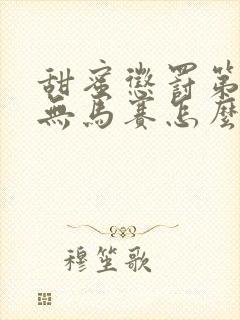 甜蜜懲罰第
無馬賽怎麼
穆笙歌